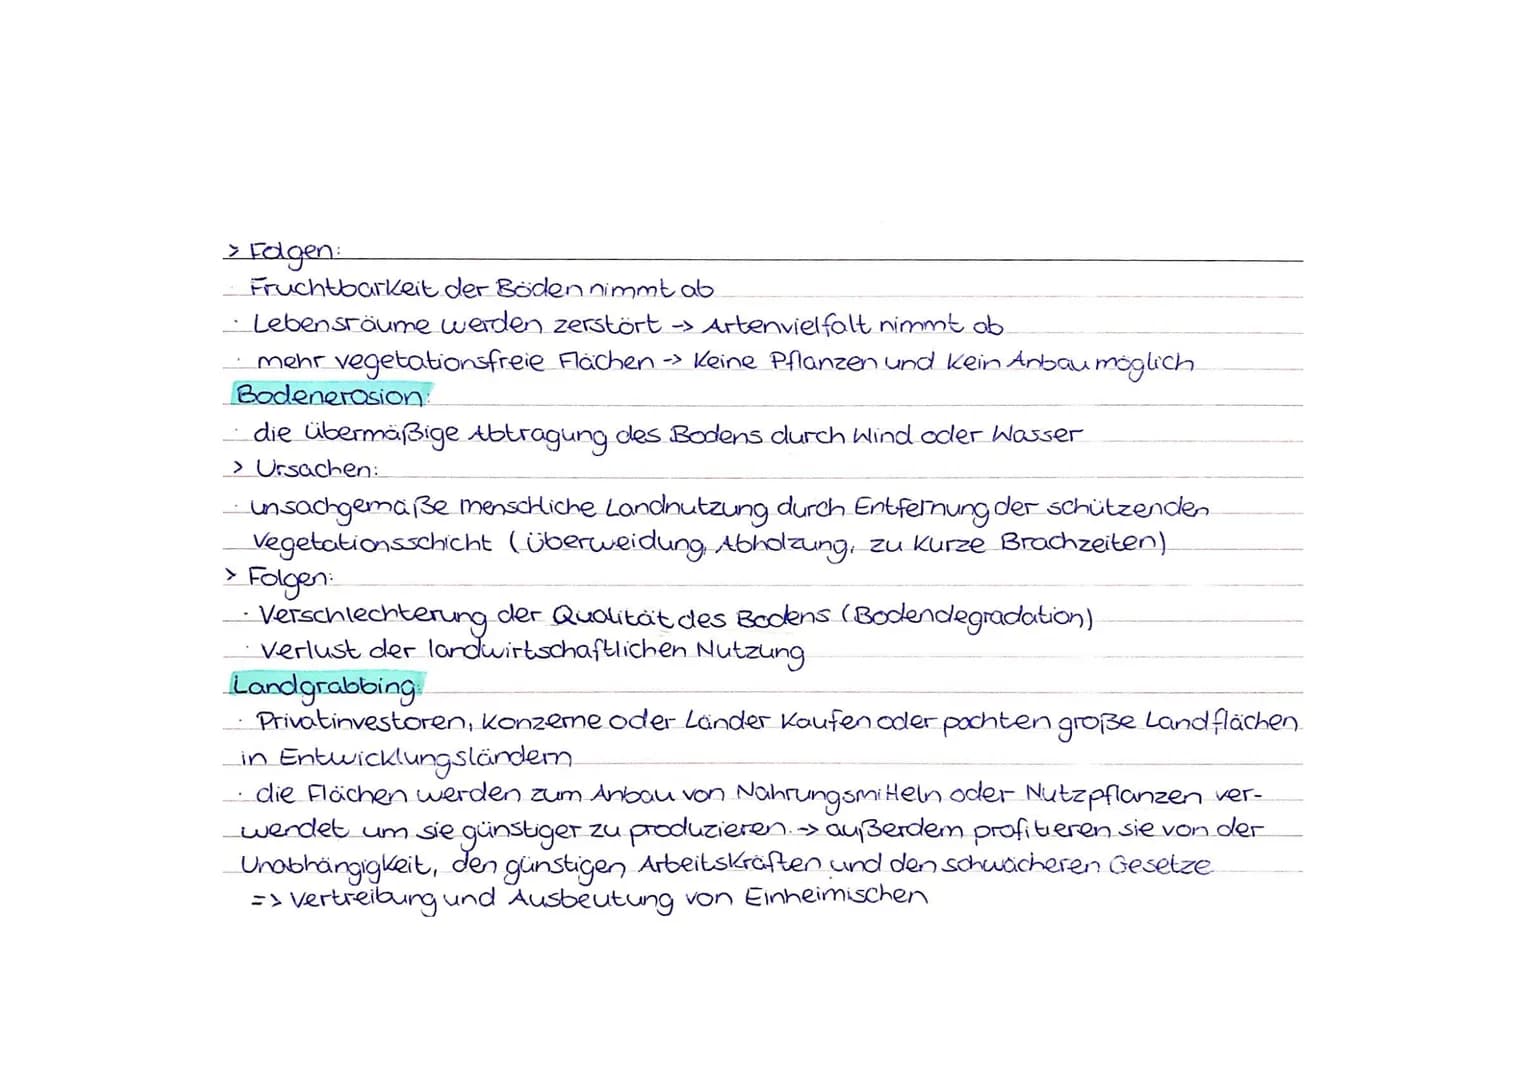 > Folgen:
· Fruchtbarkeit der Böden nimmt ab
· Lebensräume werden zerstört -> Artenvielfalt nimmt ab
· mehr vegetationsfreie Flächen -> Keine Pflanzen und kein Anbau möglich
Bodenerosion:
· die übermäßige Abtragung des Bodens durch Wind oder Wasser
> Ursachen:
· unsachgemäße menschliche Landnutzung durch Entfernung der schützenden
Vegetationsschicht (Überweidung, Abholzung, zu kurze Brachzeiten)
> Folgen:
· Verschlechterung der Qualität des Bodens (Bodendegradation)
· Verlust der landwirtschaftlichen Nutzung
Landgrabbing:
· Privatinvestoren, Konzerne oder Länder kaufen oder pachten große Landflächen
in Entwicklungsländern
· die Flächen werden zum Anbau von Nahrungsmitteln oder Nutzpflanzen ver-
wendet um sie günstiger zu produzieren -> außerdem profitieren sie von der
Unabhängigkeit, den günstigen Arbeitskräften und den schwächeren Gesetze
=> Vertreibung und Ausbeutung von Einheimischen